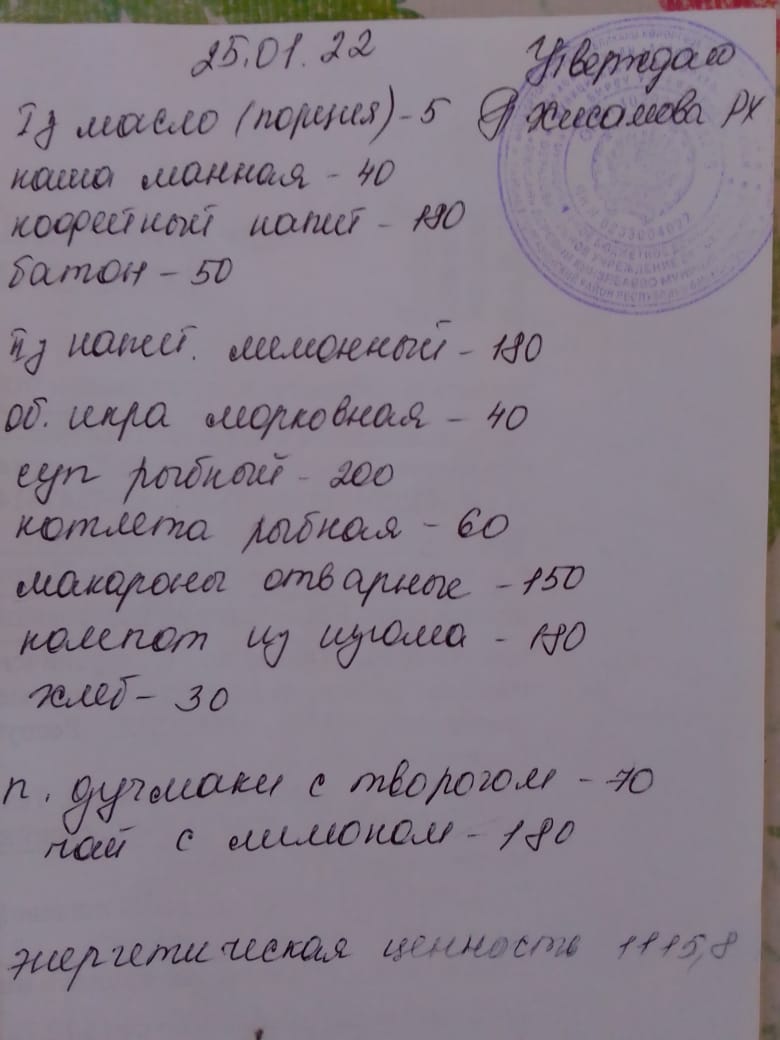 25.01.22
Утверждаю
Iз масло (порция) - 5
Хисамова РХ
каша манная - 40
кофейный напит - 180
батон - 50
IIз напит. лимонный - 180
об. икра морковная - 40
суп рыбный - 200
котлета рыбная - 60
макароны отварные - 150
компот из изюма - 180
хлеб - 30
п. дучмаки с творогом - 70
чай с лимоном - 180
энергетическая ценность 1115,8